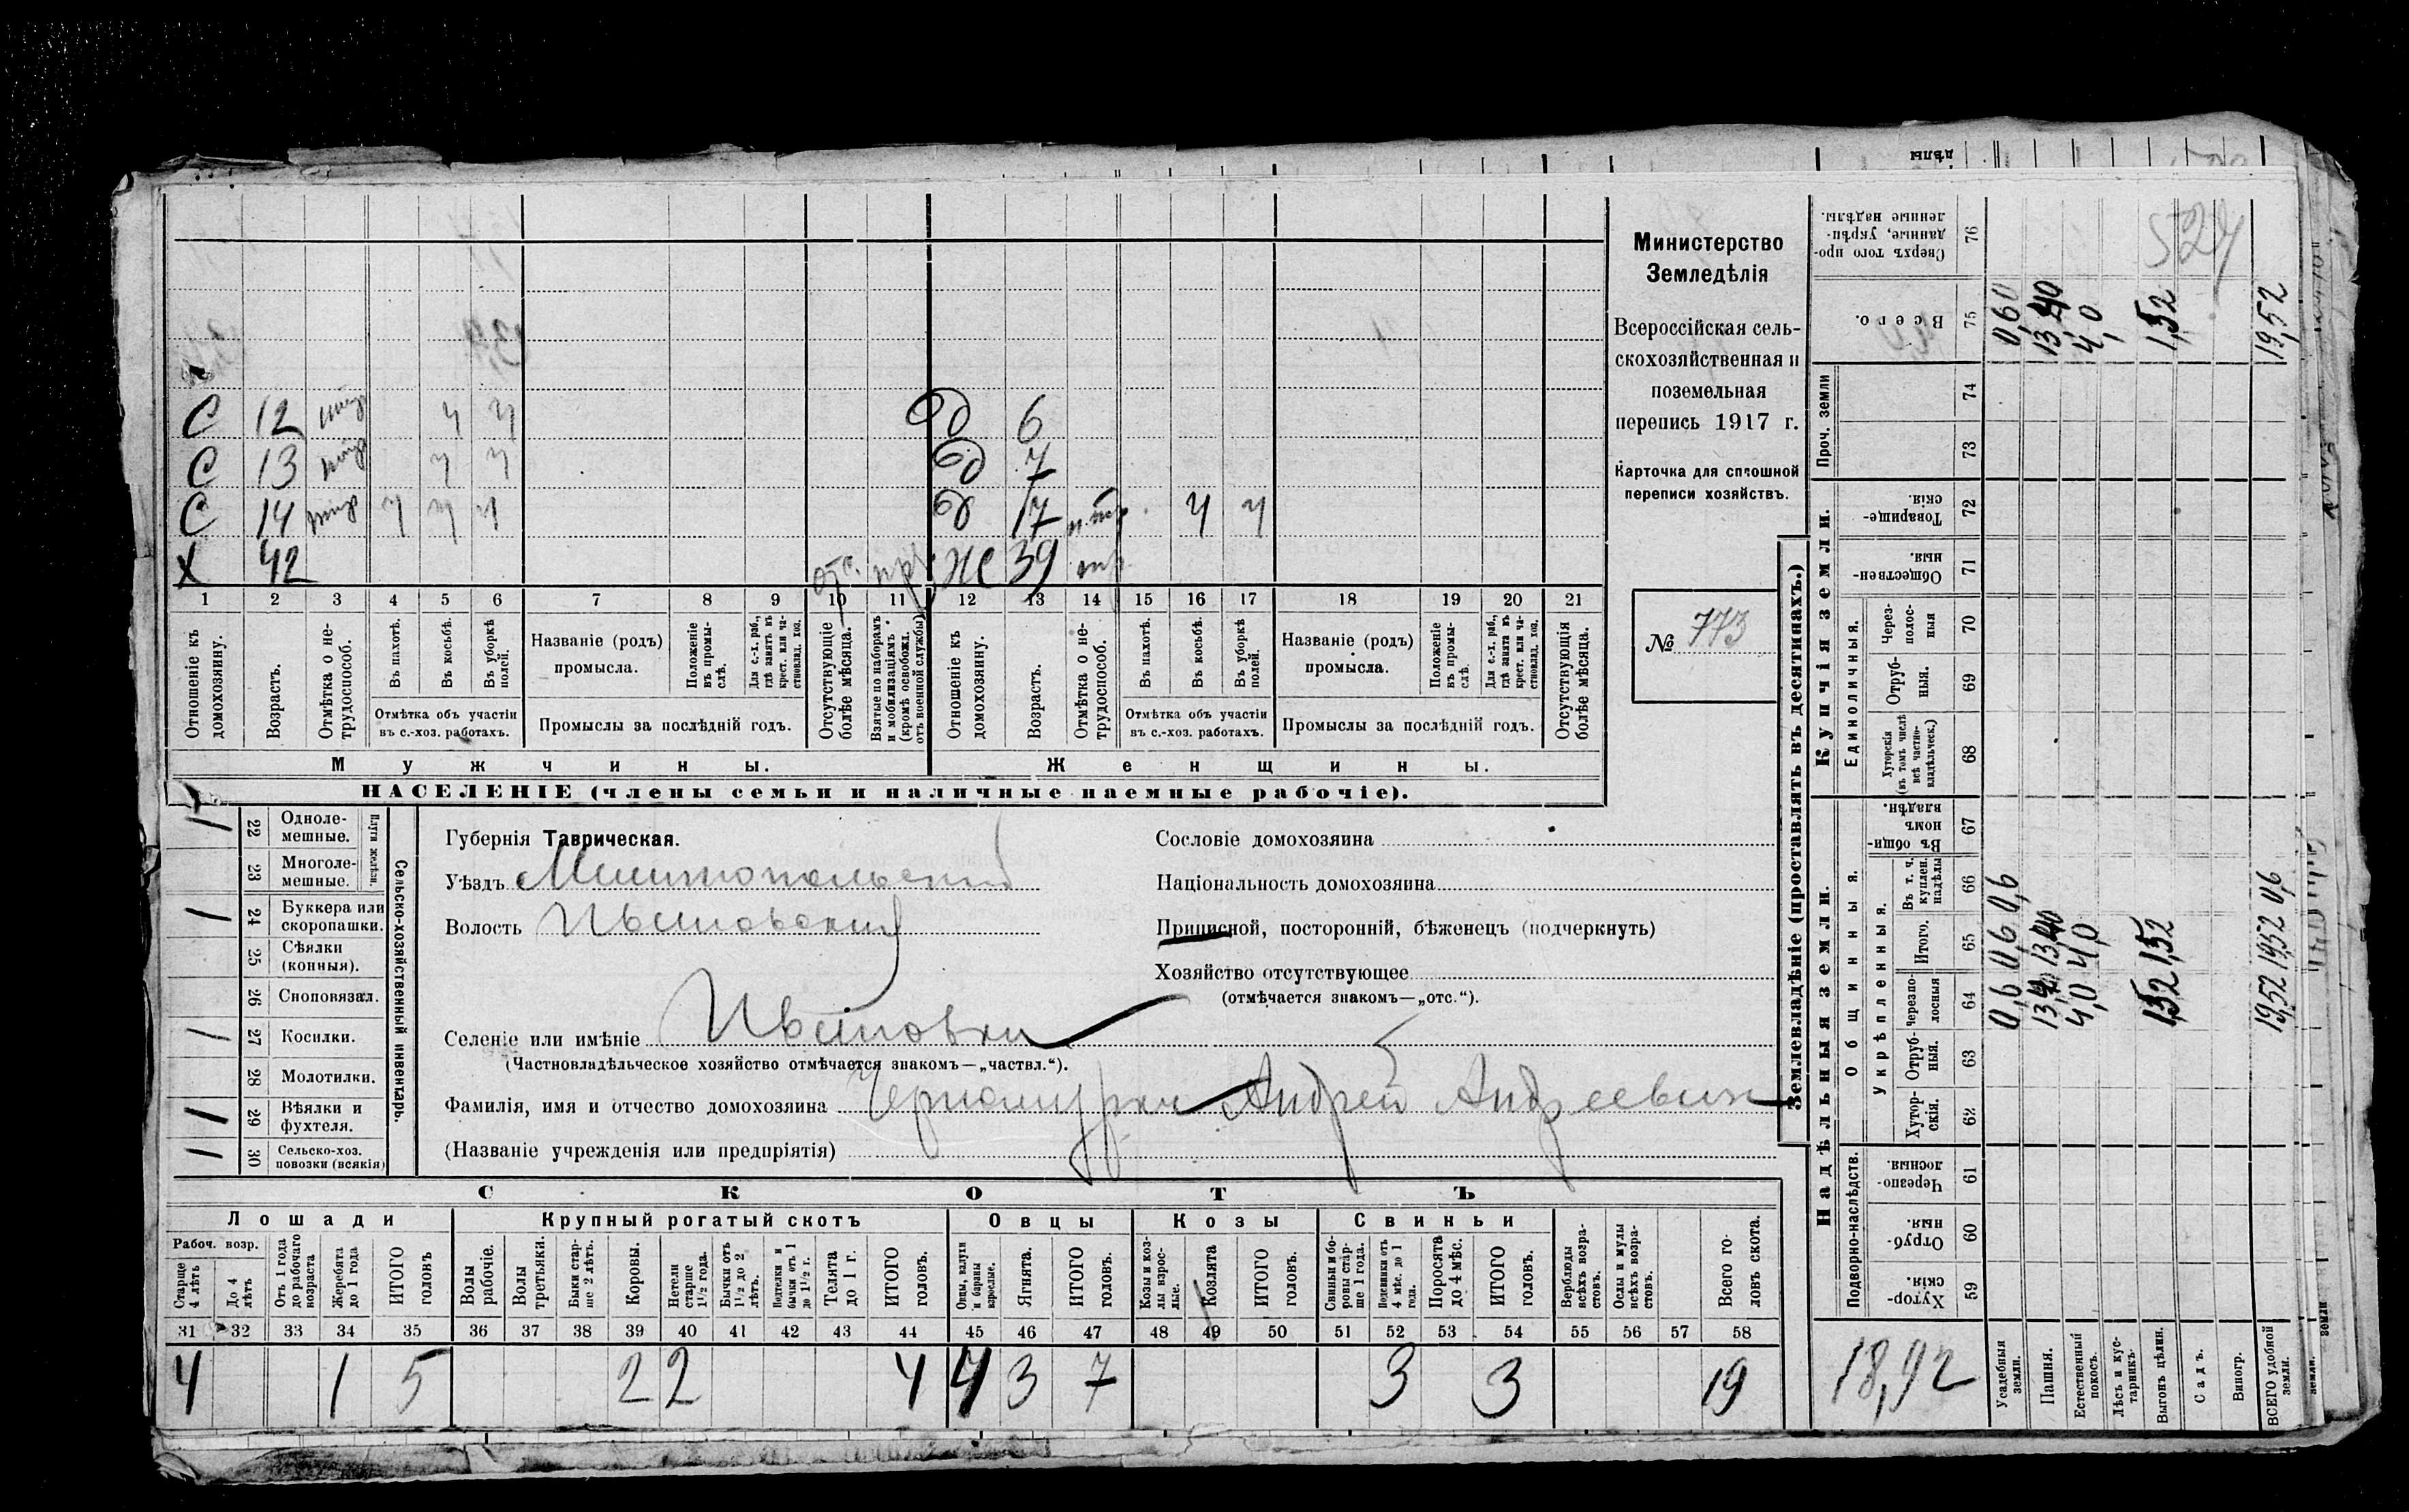 С 12 ч ч д 6
С 13 ч ч д 7
С 14 ч ч ч д 17 ч ч
Х 42 отс. ж 39
1 2 3 4 5 6 7 8 9 10 11 12 13 14 15 16 17 18 19 20 21
Отношеніе къ домохозяину.
Возрастъ.
Отмѣтка о не-трудоспособ.
Въ пахотѣ.
Въ косьбѣ.
Въ уборкѣ полей.
Отмѣтка объ участіи въ с.-хоз. работахъ.
Названіе (родъ) промысла.
Положеніе въ промы-слѣ.
Для с.-х. раб., гдѣ занятъ въ крест. или ча-стновлад. хоз.
Промыслы за послѣдній годъ.
Отсутствующіе болѣе мѣсяца.
Взятые по наборамъ и мобилизаціямъ (кромѣ освобожд. отъ военной службы)
Отношеніе къ домохозяину.
Возрастъ.
Отмѣтка о не-трудоспособ.
Въ пахотѣ.
Въ косьбѣ.
Въ уборкѣ полей.
Отмѣтка объ участіи въ с.-хоз. работахъ.
Названіе (родъ) промысла.
Положеніе въ промы-слѣ.
Для с.-х. раб., гдѣ занята въ крест. или ча-стновлад. хоз.
Промыслы за послѣдній годъ.
Отсутствующія болѣе мѣсяца.
Мужчины.
Женщины.
НАСЕЛЕНІЕ (члены семьи и наличные наемные рабочіе).
Министерство
Земледѣлія
Всероссійская сель-
скохозяйственная и
поземельная
перепись 1917 г.
Карточка для сплошной
переписи хозяйствъ.
№ 773
Сельско-хозяйственный инвентарь.
Плуги желѣзн.
1 22 Одноле-мешные.
23 Многоле-мешные.
1 24 Буккера или скоропашки.
25 Сѣялки (конныя).
26 Сноповязал.
1 27 Косилки.
28 Молотилки.
1 29 Вѣялки и фухтеля.
1 30 Сельско-хоз. повозки (всякія)
Губернія Таврическая.
Уѣздъ Мелитопольский
Волость
Селеніе или имѣніе
(Частновладѣльческое хозяйство отмѣчается знакомъ—„частвл.“).
Фамилія, имя и отчество домохозяина Андрей Андреевич
(Названіе учрежденія или предпріятія)
Сословіе домохозяина
Національность домохозяина
Приписной, посторонній, бѣженецъ (подчеркнуть)
Хозяйство отсутствующее
(отмѣчается знакомъ—„отс.“).
СКОТЪ
Лошади
Крупный рогатый скотъ
Овцы
Козы
Свиньи
Рабоч. возр.
Старше 4 лѣтъ
До 4 лѣтъ
Отъ 1 года до рабочаго возраста
Жеребята до 1 года
ИТОГО головъ
Волы рабочіе.
Волы третьяки.
Быки стар-ше 2 лѣтъ.
Коровы.
Нетели старше 1½ года.
Бычки отъ 1½ до 2 лѣтъ.
Подтелки и бычки отъ 1 до 1½ г.
Телята до 1 г.
ИТОГО головъ.
Овцы, валухи и бараны взрослые.
Ягнята.
ИТОГО головъ.
Козы и коз-лы взрос-лые.
Козлята
ИТОГО головъ.
Свиньи и бо-ровы стар-ше 1 года.
Подсвинки отъ 4 мѣс. до 1 года.
Поросята до 4 мѣс.
ИТОГО головъ.
Верблюды всѣхъ возра-стовъ.
Ослы и мулы всѣхъ возра-стовъ.
Всего го-ловъ скота.
31 32 33 34 35 36 37 38 39 40 41 42 43 44 45 46 47 48 49 50 51 52 53 54 55 56 57 58
4 1 5 2 2 4 4 3 7 3 3 19
Землевладѣніе (проставлять въ десятинахъ.)
Сверхъ того про-данные, укрѣп-ленные надѣлы. 76
Всего. 75
Проч. земли 74 73
Купчія земли.
Товарище-скія. 72
Обществен-ныя. 71
Единоличныя.
Через-полос-ныя 70
Отруб-ныя. 69
Хуторскія (въ томъ числѣ всѣ частно-владѣльческ.) 68
Надѣльныя земли.
Общинныя.
Въ общи-номъ владѣн. 67
Укрѣпленныя.
Въ т. ч. куплен. надѣлы 66
Итого. 65
Черезпо-лосныя 64
Отруб-ныя. 63
Хутор-скія. 62
Подворно-наслѣдств.
Черезпо-лосныя. 61
Отруб-ныя. 60
Хутор-скія. 59
Усадебныя земли. 0,6 0,6 0,6 0,60
Пашня.
Естественный покосъ. 4,0 4,0 4,0
Лѣсъ и кус-тарникъ.
Выгонъ цѣлин. 1,52 1,52 1,52
Садъ.
Виногр.
ВСЕГО удобной земли. 19,52 19,52 0,6 19,52
18,92
524